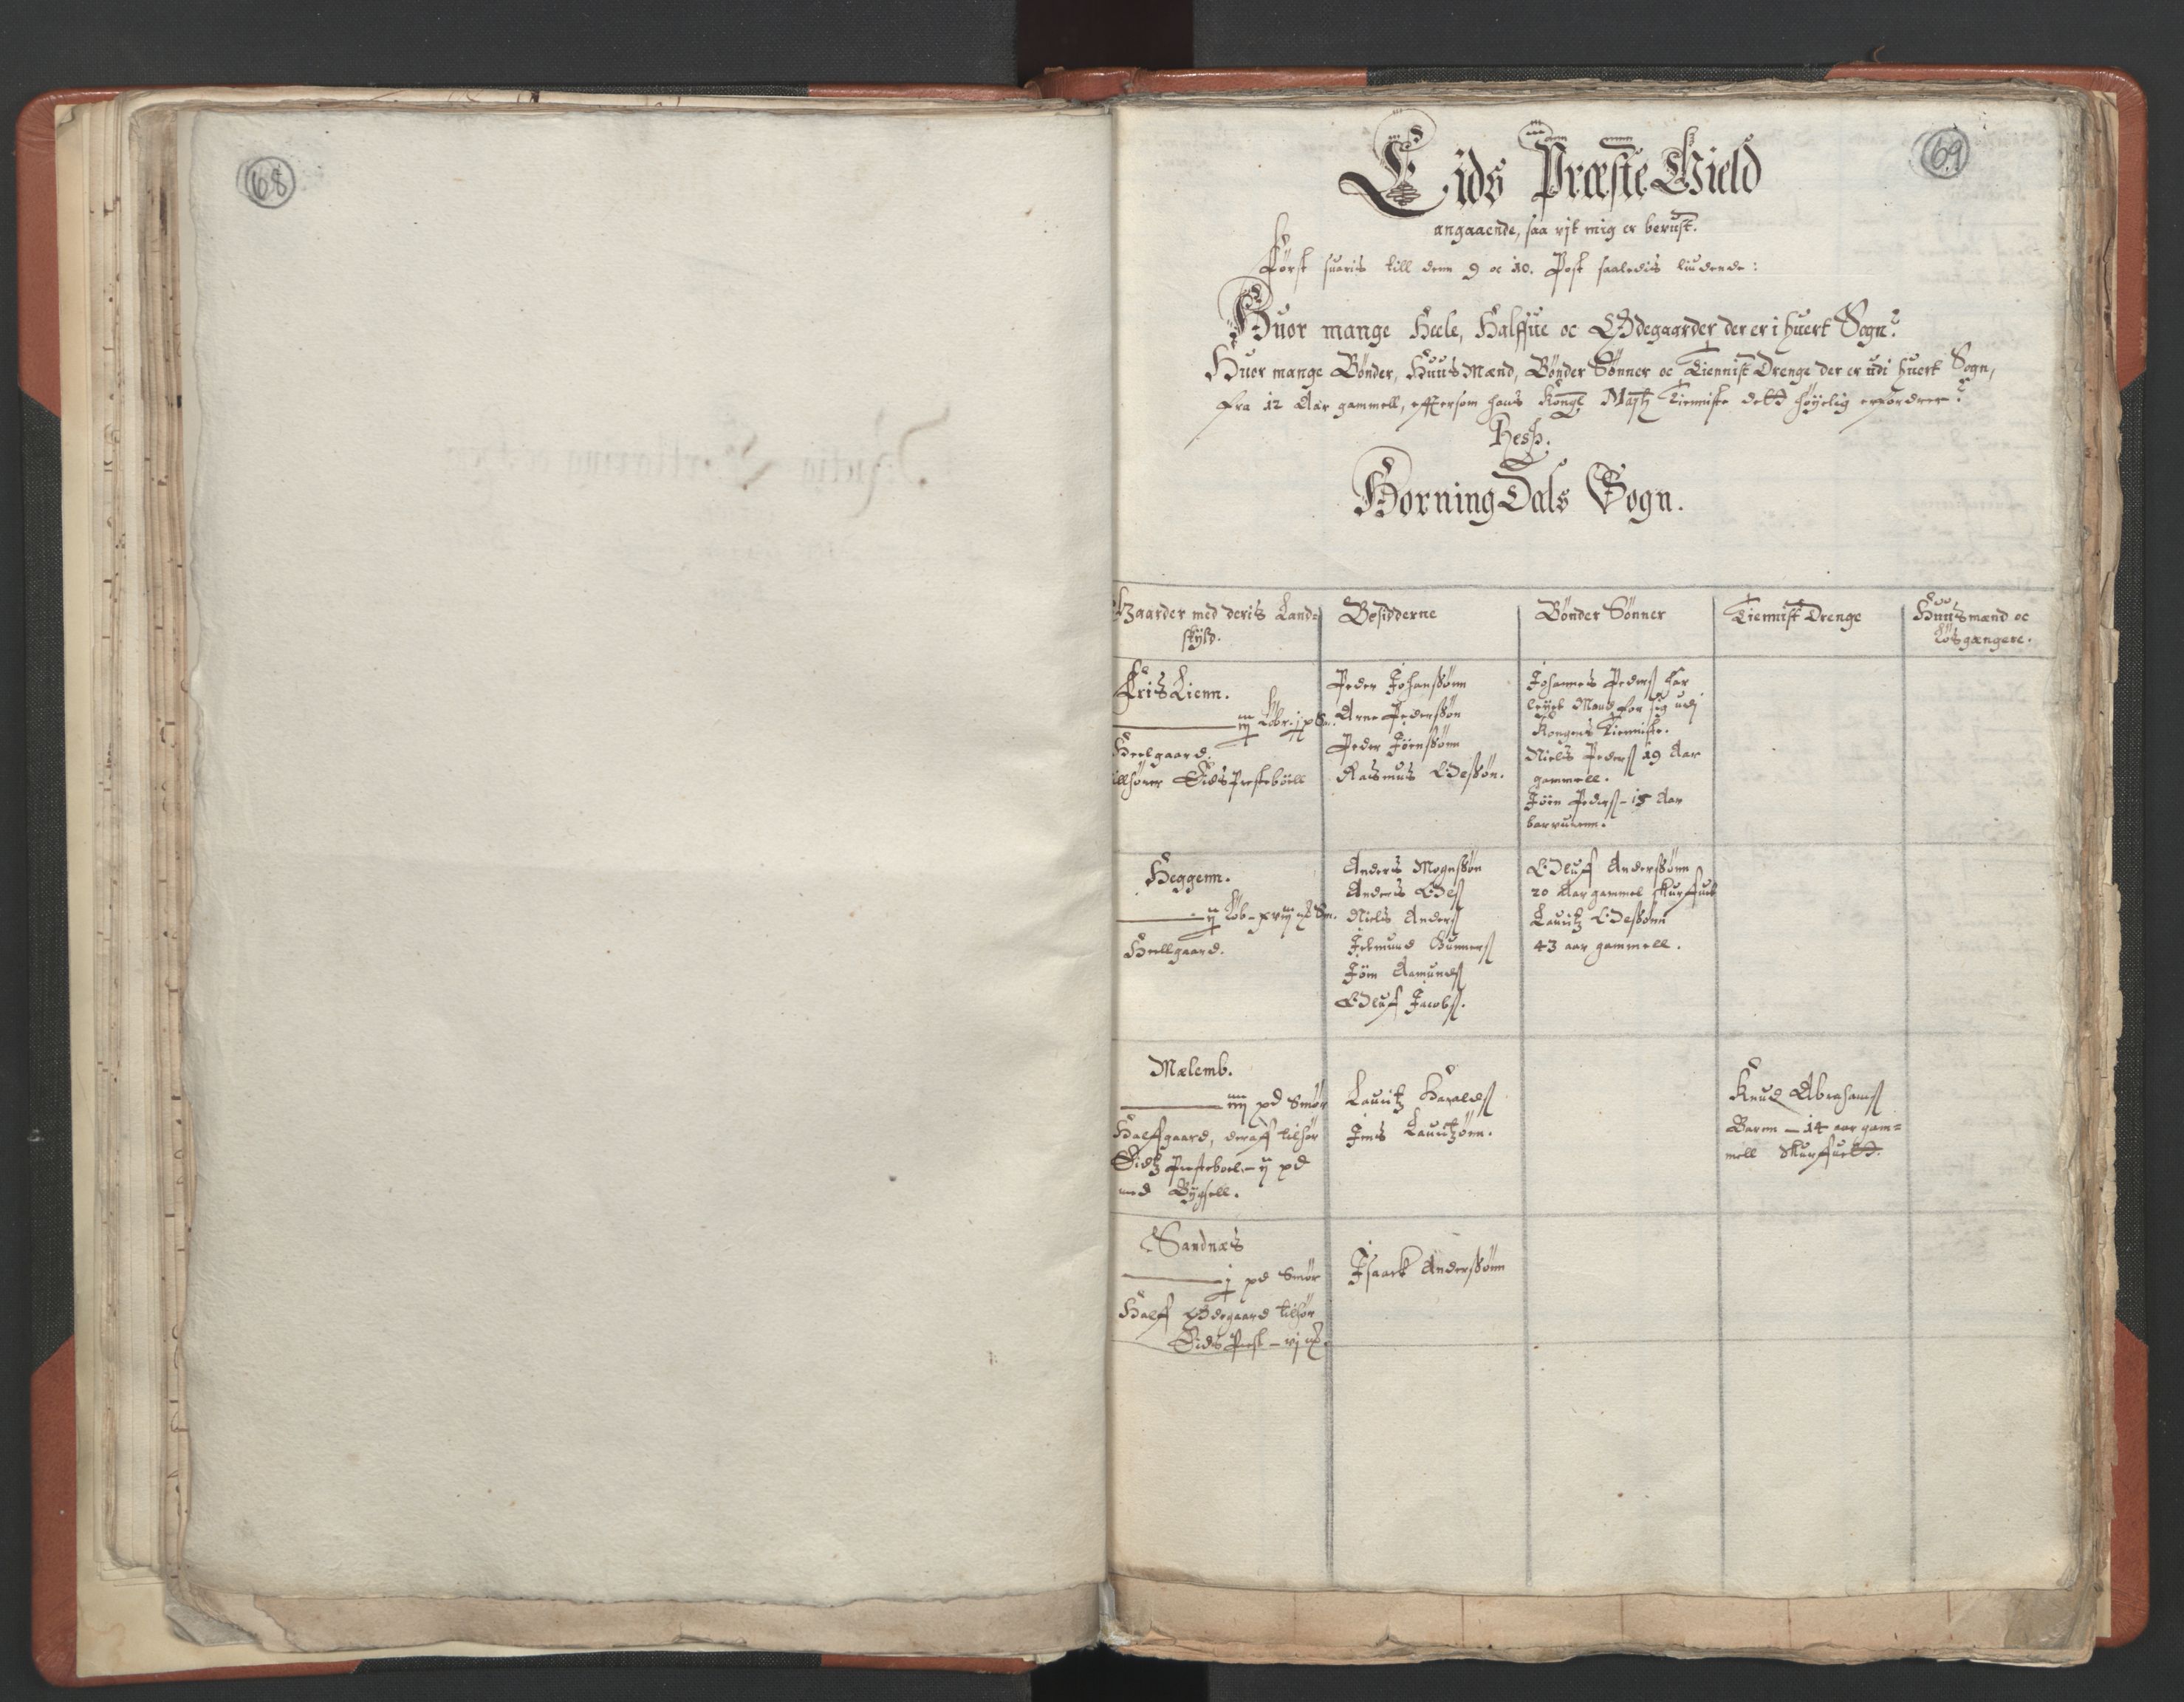 68
69
Eids Præste Gield
angaaende, saa vjt mig er berust.
Først suaris till denn 9 oc 10. Post saaledis liudende:
Huor mange Heele, Halffue oc Ødegaarder der er i huert Sogn?
Huor mange Bønder, Huus Mænd, Bønder Sønner oc Tiennist Drenge der er udi huert Sogn,
fra 12 Aar gammell, effersom hans Kongl Maitz Tienniste dett høyelig erfordrer?
Resp.
Horning Dals Sogn.
Gaarder med deris Land-
skyld.
Besidderne
Bønder Sønner
Tiennist Drenge
Huusmænd oc
Løsgængere.
Lris Lienn.
iij Løbr. j pd Sm.
Heelgaard.
tillhører Eids Prestebøell
Peder Johanssønn
Arne Pederssøn
Peder Jørnssønn
Rasmus Olessøn.
Johannes Peders har
leyet Mand for sig udj
Kongens Tienniste.
Niels Peders 19 Aar
gammell.
Jørn Peders - 15 Aar
Heggenn.
ij Løb - xviij mk Sm.
Heellgaard.
Anders Mognssøn
Anders Oles
Niels Anders
Jetmund Gunners
Jørn Asmunds
Oluf Jacobs.
Oluf Anderssønn
20 Aar gammel skurfued
Lauritz Olessønn
43 aar gammell.
Mælemb.
iiij pd Smør
Halfgaard, deraff tilhør
Eidtz Presteboel - ij pd
med Bygsell.
Lauritz Haralds
Jens Lauritzønn.
Knud Abrahams
Barnn - 14 aar gam-
mell Skurfuett.
Sandnæs
j pd Smør
Half Ødegaard tilhør
Eids Prest - vj mk.
Jsaack Anderssønn